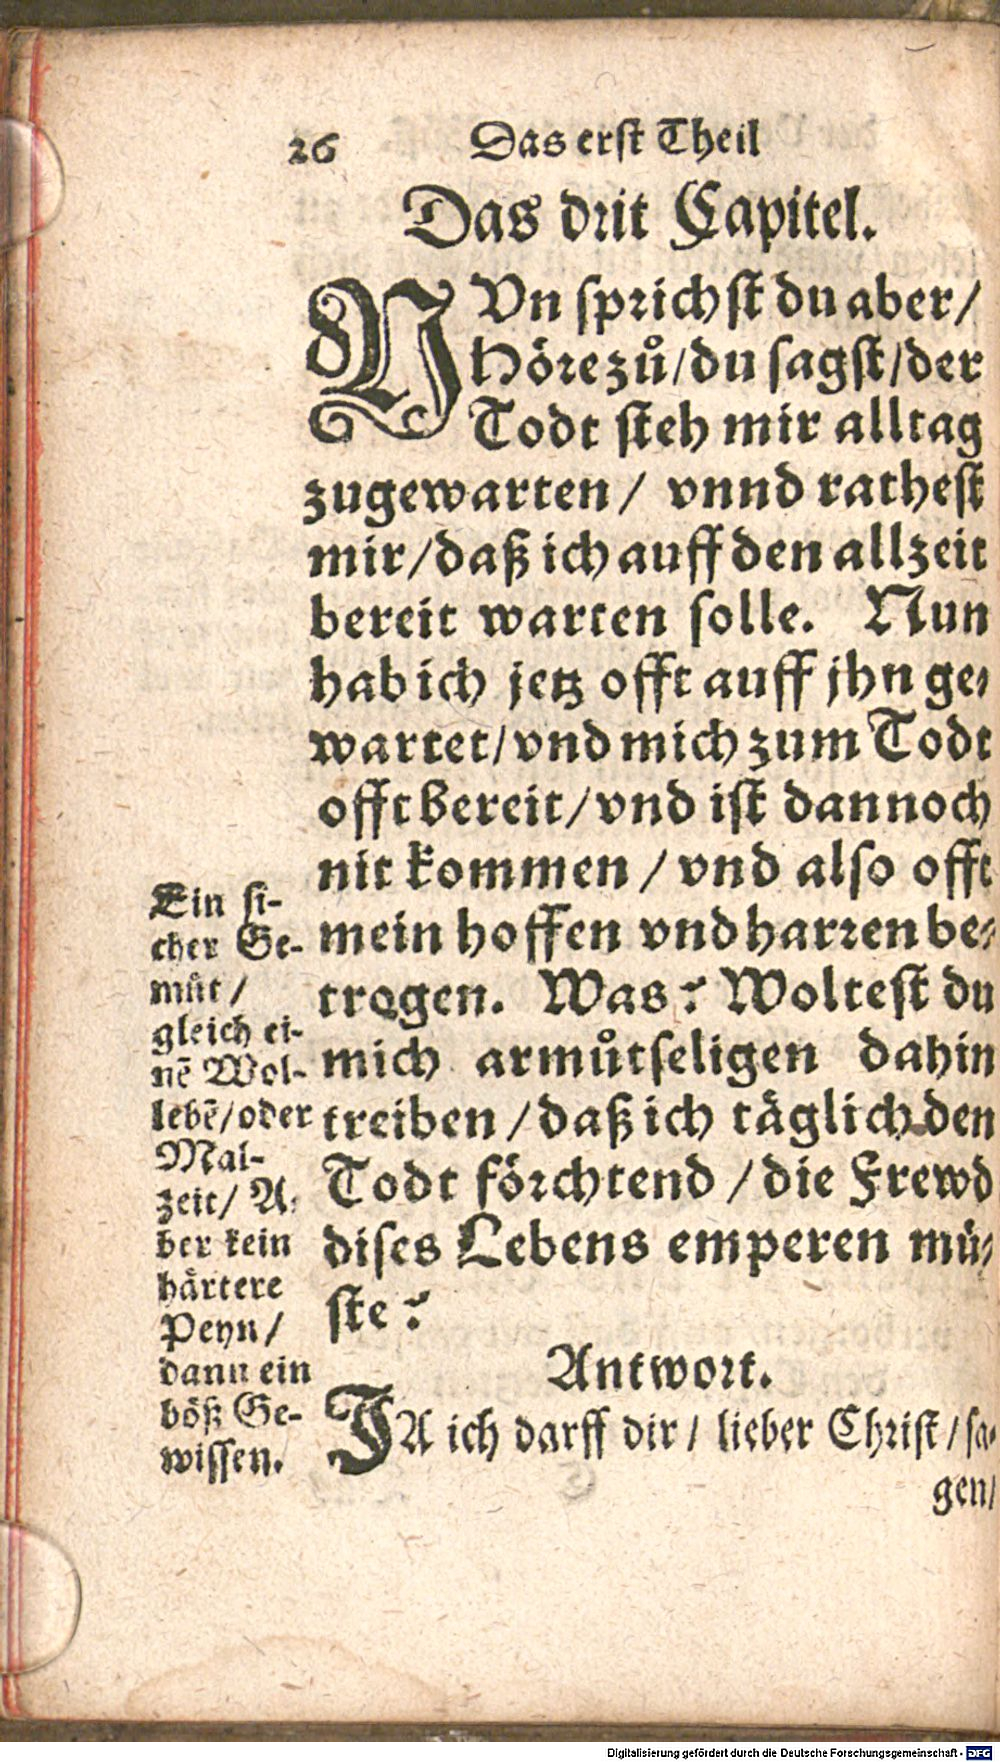 26 Das erst Theil
Das drit Capitel.
NUn sprichst du aber/
Höre zů/du sagst/der
Todt steh mir alltag
zugewarten/ vnnd rathest
mir/daß ich auff den allzeit
bereit warten solle. Nun
hab ich jetz offt auff jhn ge-
wartet/vnd mich zum Todt
offt bereit/vnd ist dannoch
nit kommen/vnd also offt
mein hoffen vnd harren be-
trogen. Was? Woltest du
mich armůtseligen dahin
treiben/daß ich täglich den
Todt förchtend/die Frewd
dises Lebens emperen mü-
ste?
Ein si-
cher Ge-
můt/
gleich ei-
nē Wol-
lebē/oder
Mal-
zeit/ A-
ber kein
härtere
Peyn/
dann ein
böß Ge-
wissen.
Antwort.
JA ich darff dir/ lieber Christ/sa-
gen/
Digitalisierung gefördert durch die Deutsche Forschungsgemeinschaft - DFG